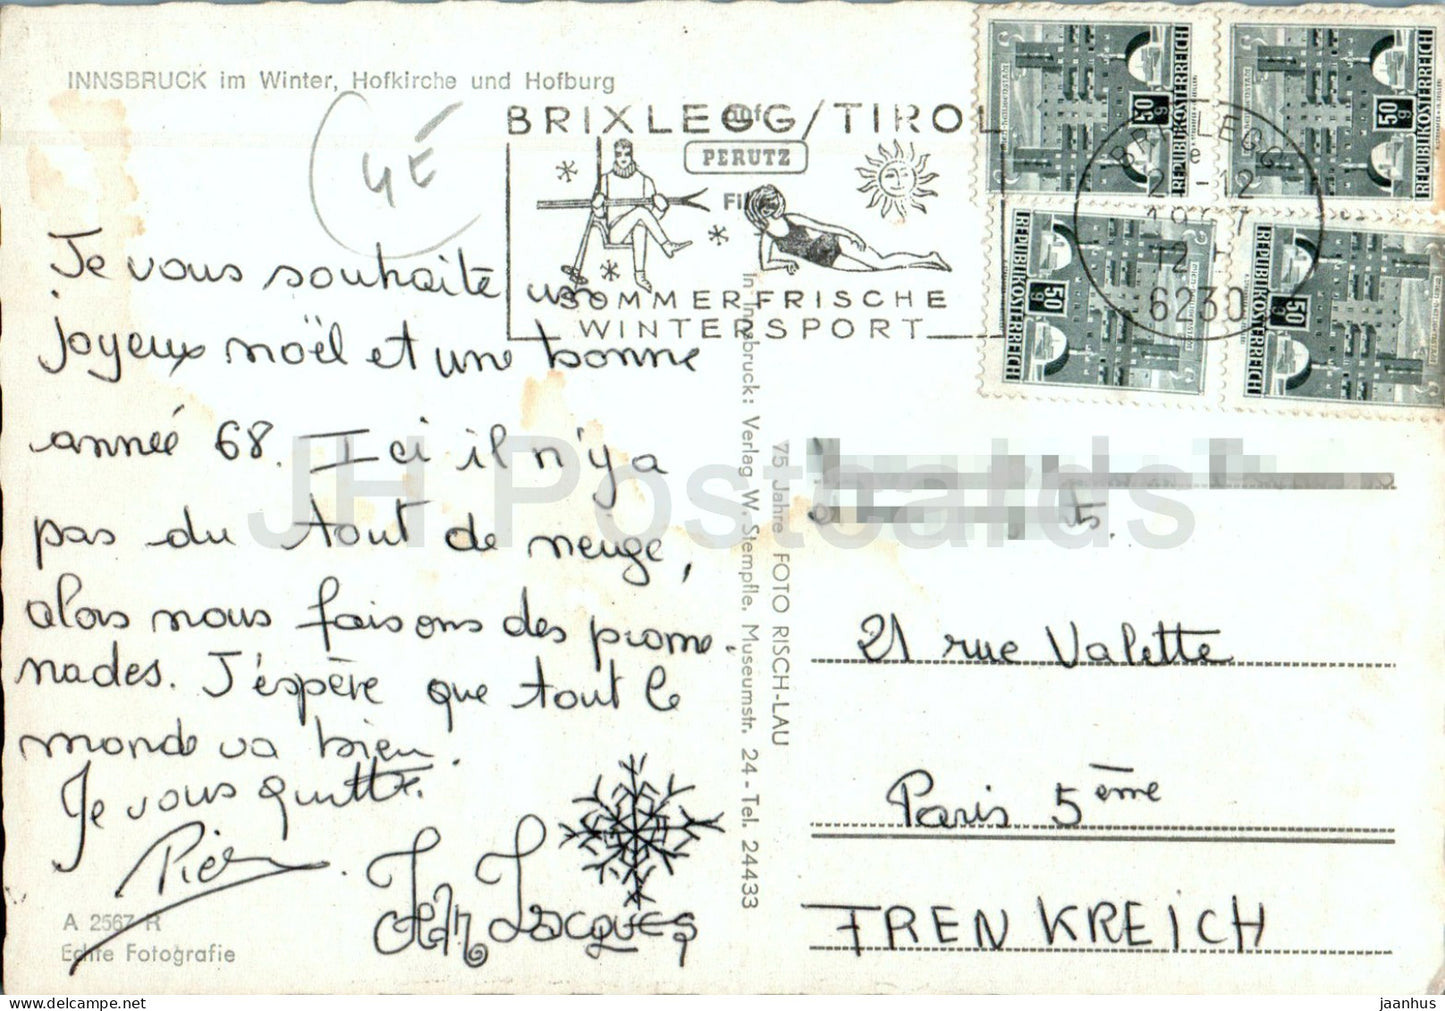 INNSBRUCK im Winter, Hofkirche und Hofburg
4E
BRIXLEGG/TIROL
auf
PERUTZ
Film
SOMMERFRISCHE
WINTERSPORT
REPUBLIK ÖSTERREICH
50
g
REPUBLIK ÖSTERREICH
50
g
REPUBLIK ÖSTERREICH
50
g
REPUBLIK ÖSTERREICH
50
g
BRIXLEGG
6230
Je vous souhaite un
joyeux noël et une bonne
année 68. Ici il n'y a
pas du tout de neige,
alors nous faisons des prome-
nades. J'éspère que tout le
monde va bien.
Je vous quitte.
Jean Jacques
A 2567 R
Echte Fotografie
In Innsbruck: Verlag W. Stempfle, Museumstr. 24 - Tel. 24433
75 Jahre FOTO RISCH-LAU
5.
21 rue Valette
Paris 5ème
FRENKREICH
JH Postcards
jaanhus